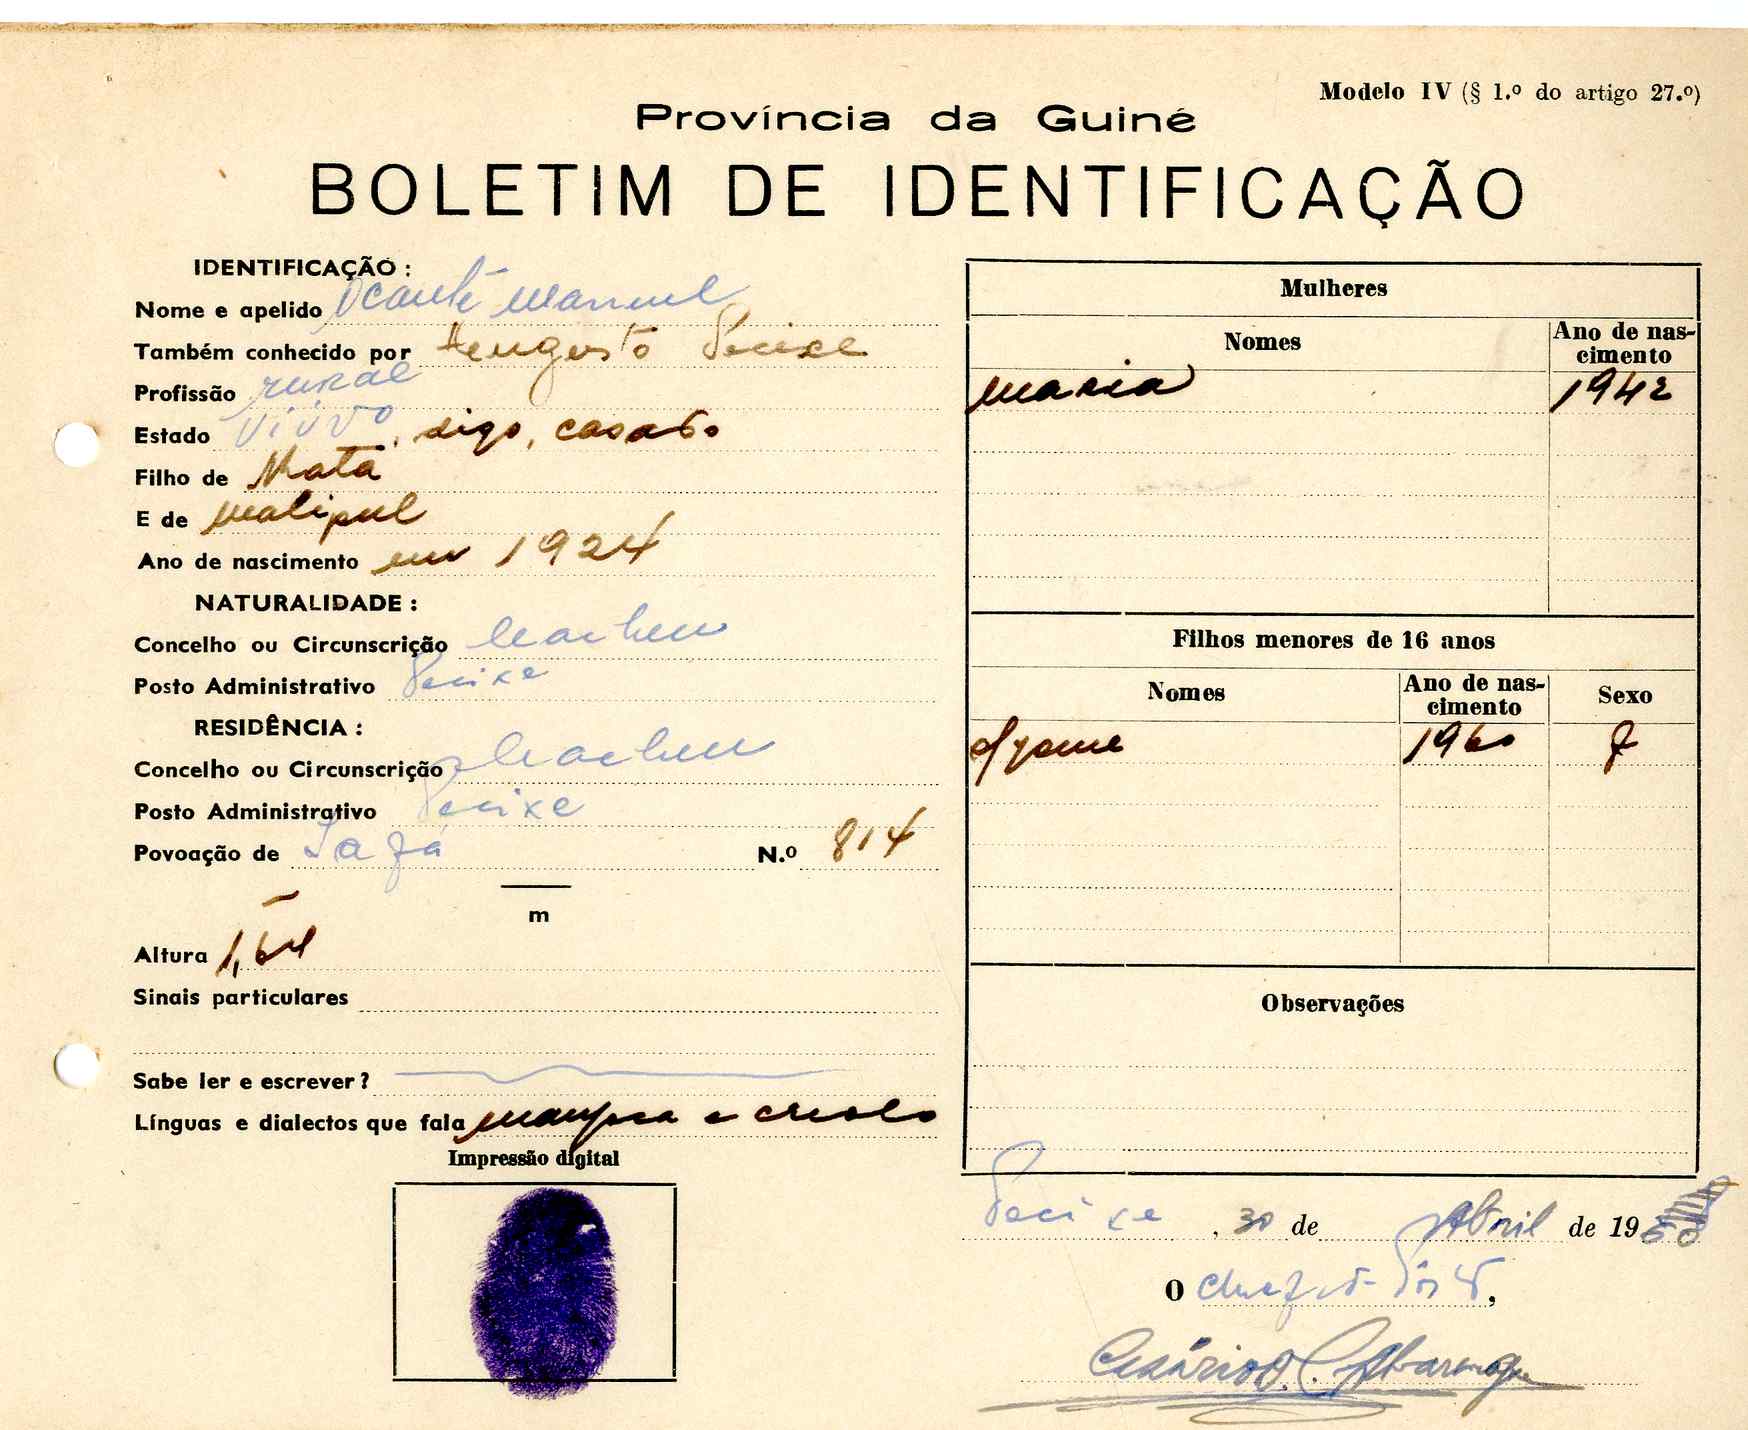 Modelo IV (§ 1.º do artigo 27.º)
Província da Guiné
BOLETIM DE IDENTIFICAÇÃO
IDENTIFICAÇÃO :
Nome e apelido Ocanté Manuel
Também conhecido por Augusto Pecixe
Profissão rural
Estado viúvo, digo, casado
Filho de Natá
E de
Ano de nascimento em 1924
NATURALIDADE :
Concelho ou Circunscrição Cacheu
Posto Administrativo Pecixe
RESIDÊNCIA :
Concelho ou Circunscrição Cacheu
Posto Administrativo Pecixe
Povoação de N.º 814
m
Altura 1,64
Sinais particulares
Sabe ler e escrever ?
Línguas e dialectos que fala manjaca e creolo
Impressão digital
Mulheres
Nomes
Ano de nas-
cimento
Maria 1942
Filhos menores de 16 anos
Nomes
Ano de nas-
cimento
Sexo
1960 F
Observações
Pecixe, 30 de Abril de 19
O Chefe do Posto,